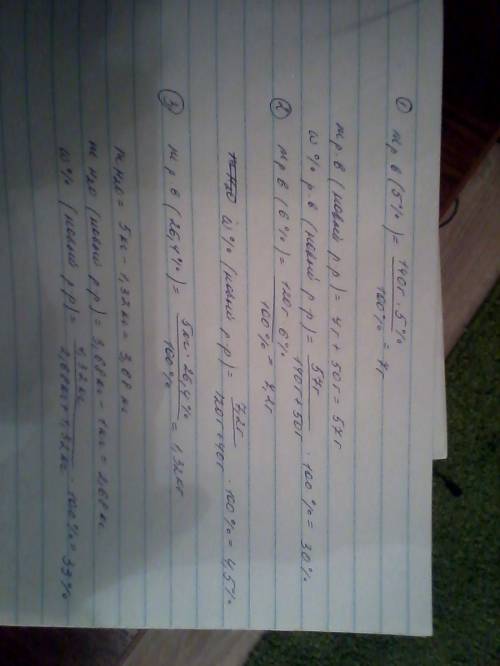 ① m р.в (5%) = 140г · 5% / 100% = 7г
m р.в (новый р.р) = 7г + 50г = 57г
w % р.в (новый р.р) = 57г / 140г+50г · 100% = 30%
② m р.в (6%) = 120г · 6% / 100% = 7,2г
w % (новый р.р) = 7,2г / 120г+40г · 100% = 4,5%
③ m р.в (26,4%) = 5кг · 26,4% / 100% = 1,32кг
m H₂O = 5кг - 1,32кг = 3,68кг
m H₂O (новый р.р) = 3,68кг - 1кг = 2,68кг
w % (новый р.р) = 1,32кг / 2,68кг+1,32кг · 100% = 33%